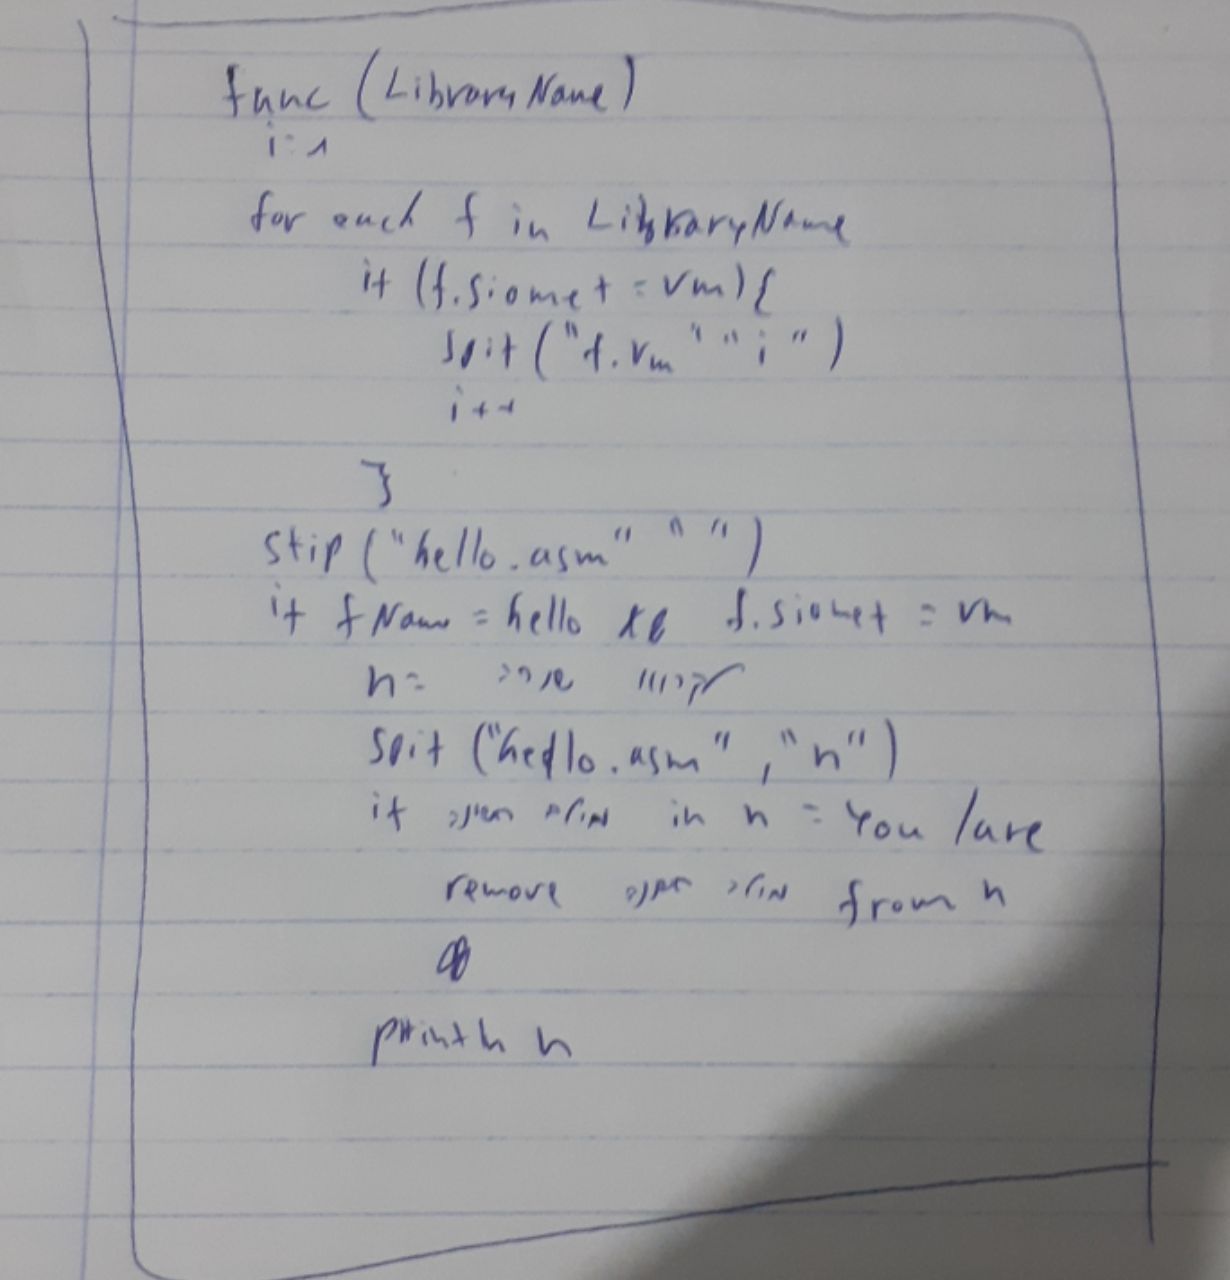 func (LibraryName)
i=1
for each f in LibraryName
if (f.siomet = vm) {
spit ("f.vm" "i")
i++
}
stip ("hello.asm" " ")
if fName = hello או f.siomet = vm
n=
spit ("hello.asm" , "n")
if in n = You / are
remove from n
println n